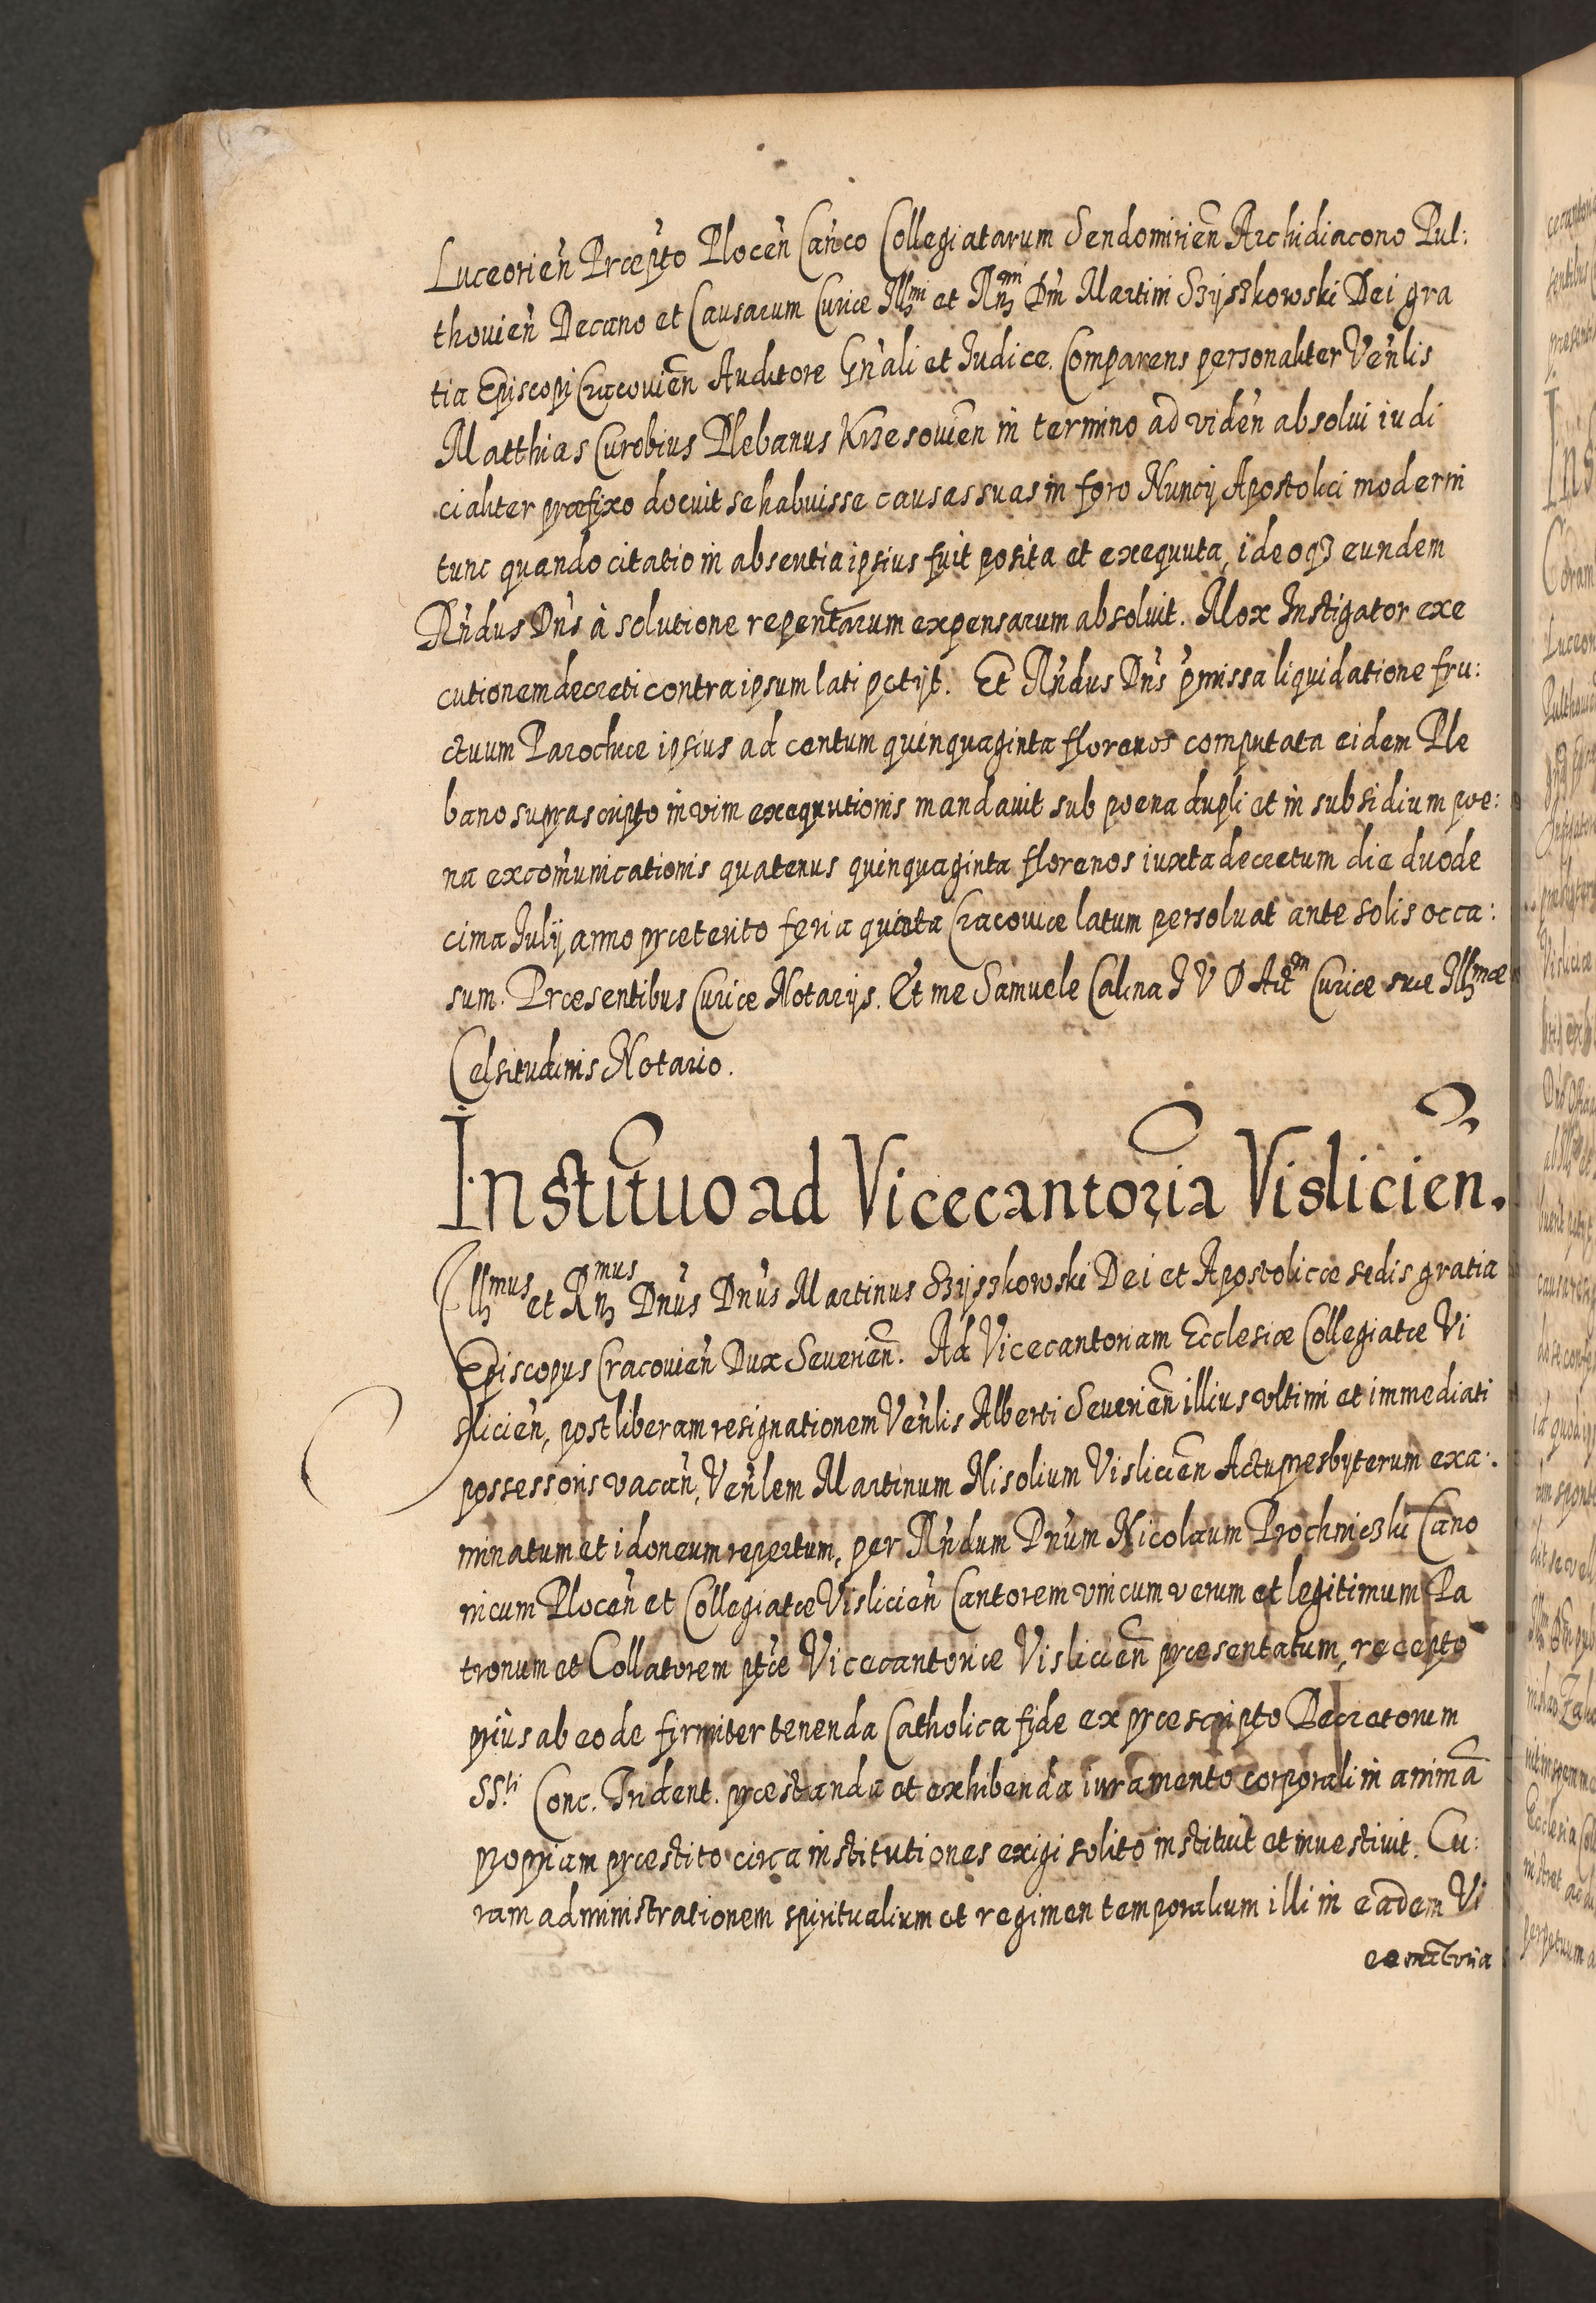 Luceorien̄ Præpto Plocen̄ Can̄co Collegiatarum Sendomirien̄ Archidiacono Pul:
thouien̄ Decano et Causarum Curiæ Illmi et Rnmi Dm̄ Martini Szyszkowski Dei gra
tia Episcopi Cracouien̄ Auditore Gn̄ali et Iudice. Comparens personaliter Ven̄lis
Matthias Curobius Plebanus Krzesouien̄ in termino ad viden̄ absolui iudi
cialiter præfixo docuit se habuisse causas suas in foro Nuncij Apostolici moderni
tunc quando citatio in absentia ipsius fuit posita et exequuta, ideoqȝ eundem
Rn̄dus Dn̄s à solutione repentarum expensarum absoluit. Mox Instigator exe
cutionem decreti contra ipsum lati petijt. Et Rn̄dus Dn̄s p̄missa liquidatione fru:
ctuum Parochiæ ipsius ad centum quinquaginta florenos computata eidem Ple
bano suprascripto in vim exequutionis mandauit sub poena dupli et in subsidium poe:
na excom̄unicationis quatenus quinquaginta florenos iuxta decretum die duode
cima Iulij anno præterito feria quinta Cracouiæ latum persoluat ante solis occa:
sum. Præsentibus Curiæ Notarijs. Et me Samuele Calina I V D Actm Curiæ suæ Illmæ
Celsitudinis Notario.
Institutio ad Vicecantoria Vislicien̄.
Illmus et Rnmus Dn̄us Dn̄us Martinus Szyszkowski Dei et Apostolicæ sedis gratia
Episcopus Cracouien̄ Dux Seuerien̄. Ad Vicecantoriam Ecclesiæ Collegiatæ Vi
slicien̄, post liberam resignationem Ven̄lis Alberti Seuerien̄ illius vltimi et immediati
possessoris vacan̄, Ven̄lem Martinum Misolium Vislicien̄ Actu presbyterum exa:
minatum et idoneum repertum, per Rn̄dum Dn̄um Nicolaum Prochniczki Cano
nicum Plocen̄ et Collegiatæ Vislicien̄ Cantorem vnicum verum et legitimum Pa
tronum et Collatorem p̄tæ Vicecantoriæ Vislicien̄ præsentatum, recepto
priùs ab eo de firmiter tenenda Catholica fide ex præscripto Decretorum
SS.ti Conc. Trident. præstanda et exhibenda iuramento corporali in animā
propriam præstito circa institutiones exigi solito instituit et inuestiuit. Cu:
ram administrationem spiritualium et regimen temporalium illi in eadem Vi
cecantoria